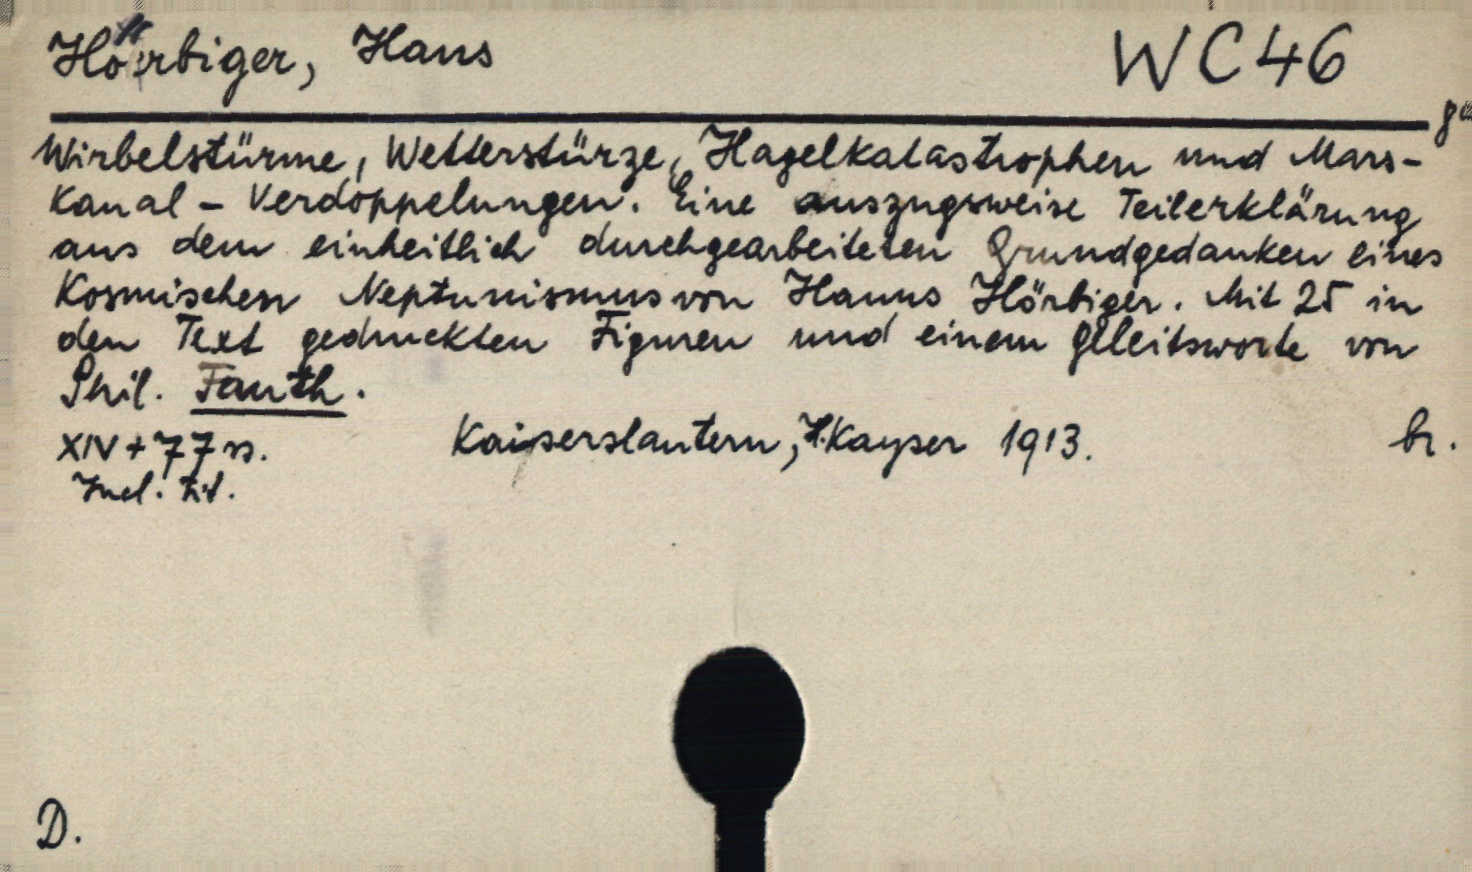 Hörbiger, Hans WC46
Wirbelstürme, Wetterstürze, Hagelkatastrophen und Mars-
kanal - Verdoppelungen. Eine auszugsweise Teilerklärung
aus dem einheitlich durchgearbeiteten Grundgedanken eines
Kosmischen Neptunismus von Hanns Hörbiger. Mit 25 in
den Text gedruckten Figuren und einem Geleitsworte von
Phil. Fauth.
XIV + 77 ss. Kaiserslautern, H. Kayser 1913. br.
Incl. tit.
D.